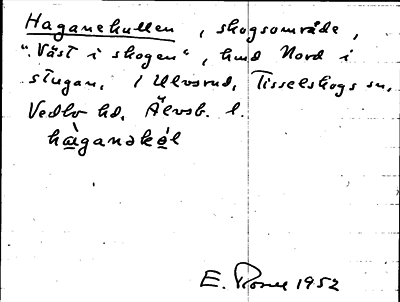 Haganekullen, skogsområde,
"Väst i skogen", hmd Nord i
stugan, i Ulvsrud, Tisselskogs sn,
Vedbo hd, Älvsb. l.
hàganəkəl
E. 1952